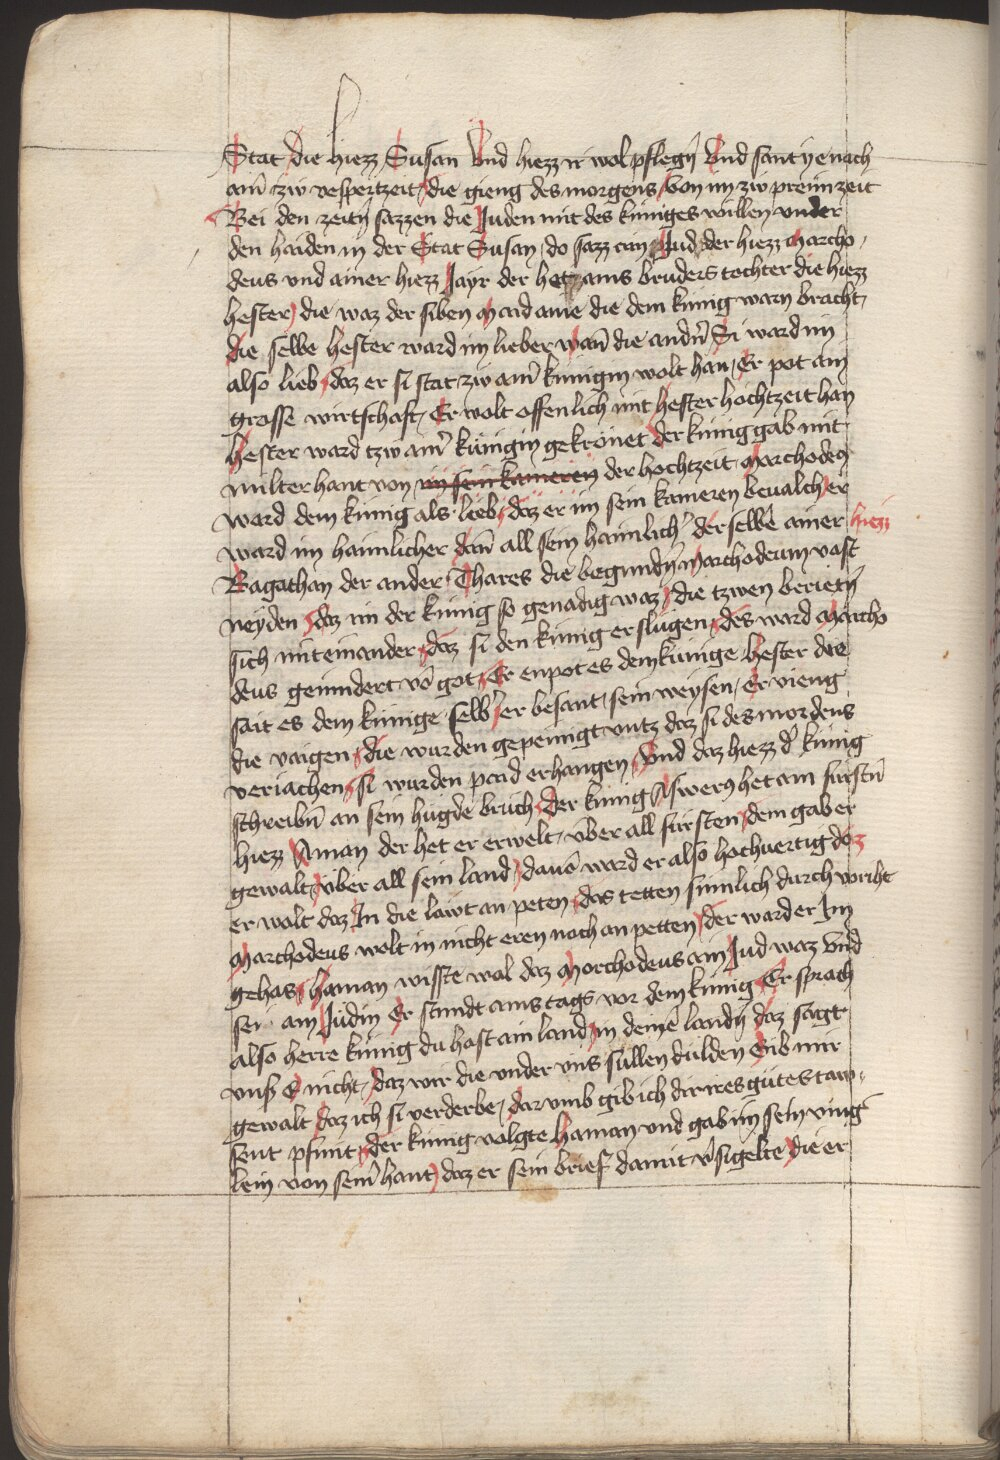 Stat die hiezz Susan Und hiezz ir wol pflegn̄ Und sant ye nach
ain̄ zw vespertzeit die gieng des morgens von im zw preim zeit
Bei den zeitn̄ sazzen die Juden mit des küniges willen vnder
den haiden in der Stat Susan do sazz ain Jud der hiezz Marcho
deus vnd ainer hiezz Jayr der het ains bruders tochter die hiezz
hester die waz der siben maid aine die dem künig warn bracht
die selbe hester ward im lieber wan̄ die andn̄ Si ward im
also lieb daz er si stat zw ain̄ künigin wolt han Er pot ain
grosse wirtschaft Er wolt offenlich mit hester hochtzeit han
hester ward tzw ain̄ künigin gekrönet der künig gab mit
milter hant von im sein kameren der hochtzeit Marchodeus
ward dem künig als lieb daz er im sein kameren beualch er
ward im haimlicher dan̄ all sein haimlich̄ der selbē ainer hiezz
Bagathan der ander Thares die begundn̄ Marchodeum vast
neyden daz im der künig so genadig waz die tzwen berietn̄
sich miteinander daz si den künig erslügen des ward Marcho
deus geinndert vō got Er enpot es dem künige hester die
sait es dem künige selb̄ er besant sein weysen Er vieng
die vaigen die wurden gepeinigt vntz daz si des mordens
veriachen si wurden paid erhangen Und daz hiezz d̄ künig
schreibn̄ an sein hugde bůch der künig Asweru9 het ain fürstn̄
hiezz Aman der het er erwelt über all fürsten dem gab er
gewalt über all sein land dauō ward er also hochuertig daz
er wolt daz In die läwt an peten das tetten sümlich durch vorcht
Marchodeus wolt in nicht eren noch an petten der ward er Im
gehas haman wisste wol daz Morchodeus ain Jud waz Und
sei ain Jüdin Er stundt ains tags vor dem künig Er sprach
also herre künig du hast ain land in deinē landn̄ daz sagt
vnß E nicht daz wir die vnder vns süllen dulden Gib mir
gewalt daz ich si verderbe dar vmb gib ich dir ires gütes taw
sent pfunt der künig volgte haman vnd gab im sein vinḡ
lein von sein̄ hant daz er sein brief damit v̄sigelte die er